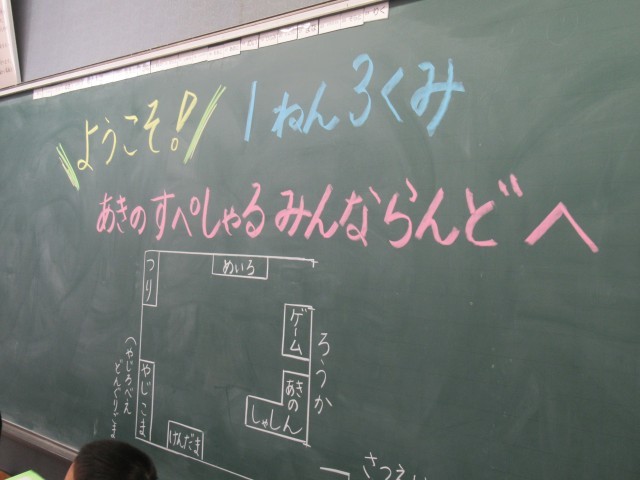 ようこそ! 1ねん3くみ
あきのすぺしゃるみんならんどへ
つり
めいろ
ゲーム
ろうか
あきの
しゃしん
やじこま
けんだま
さつえい